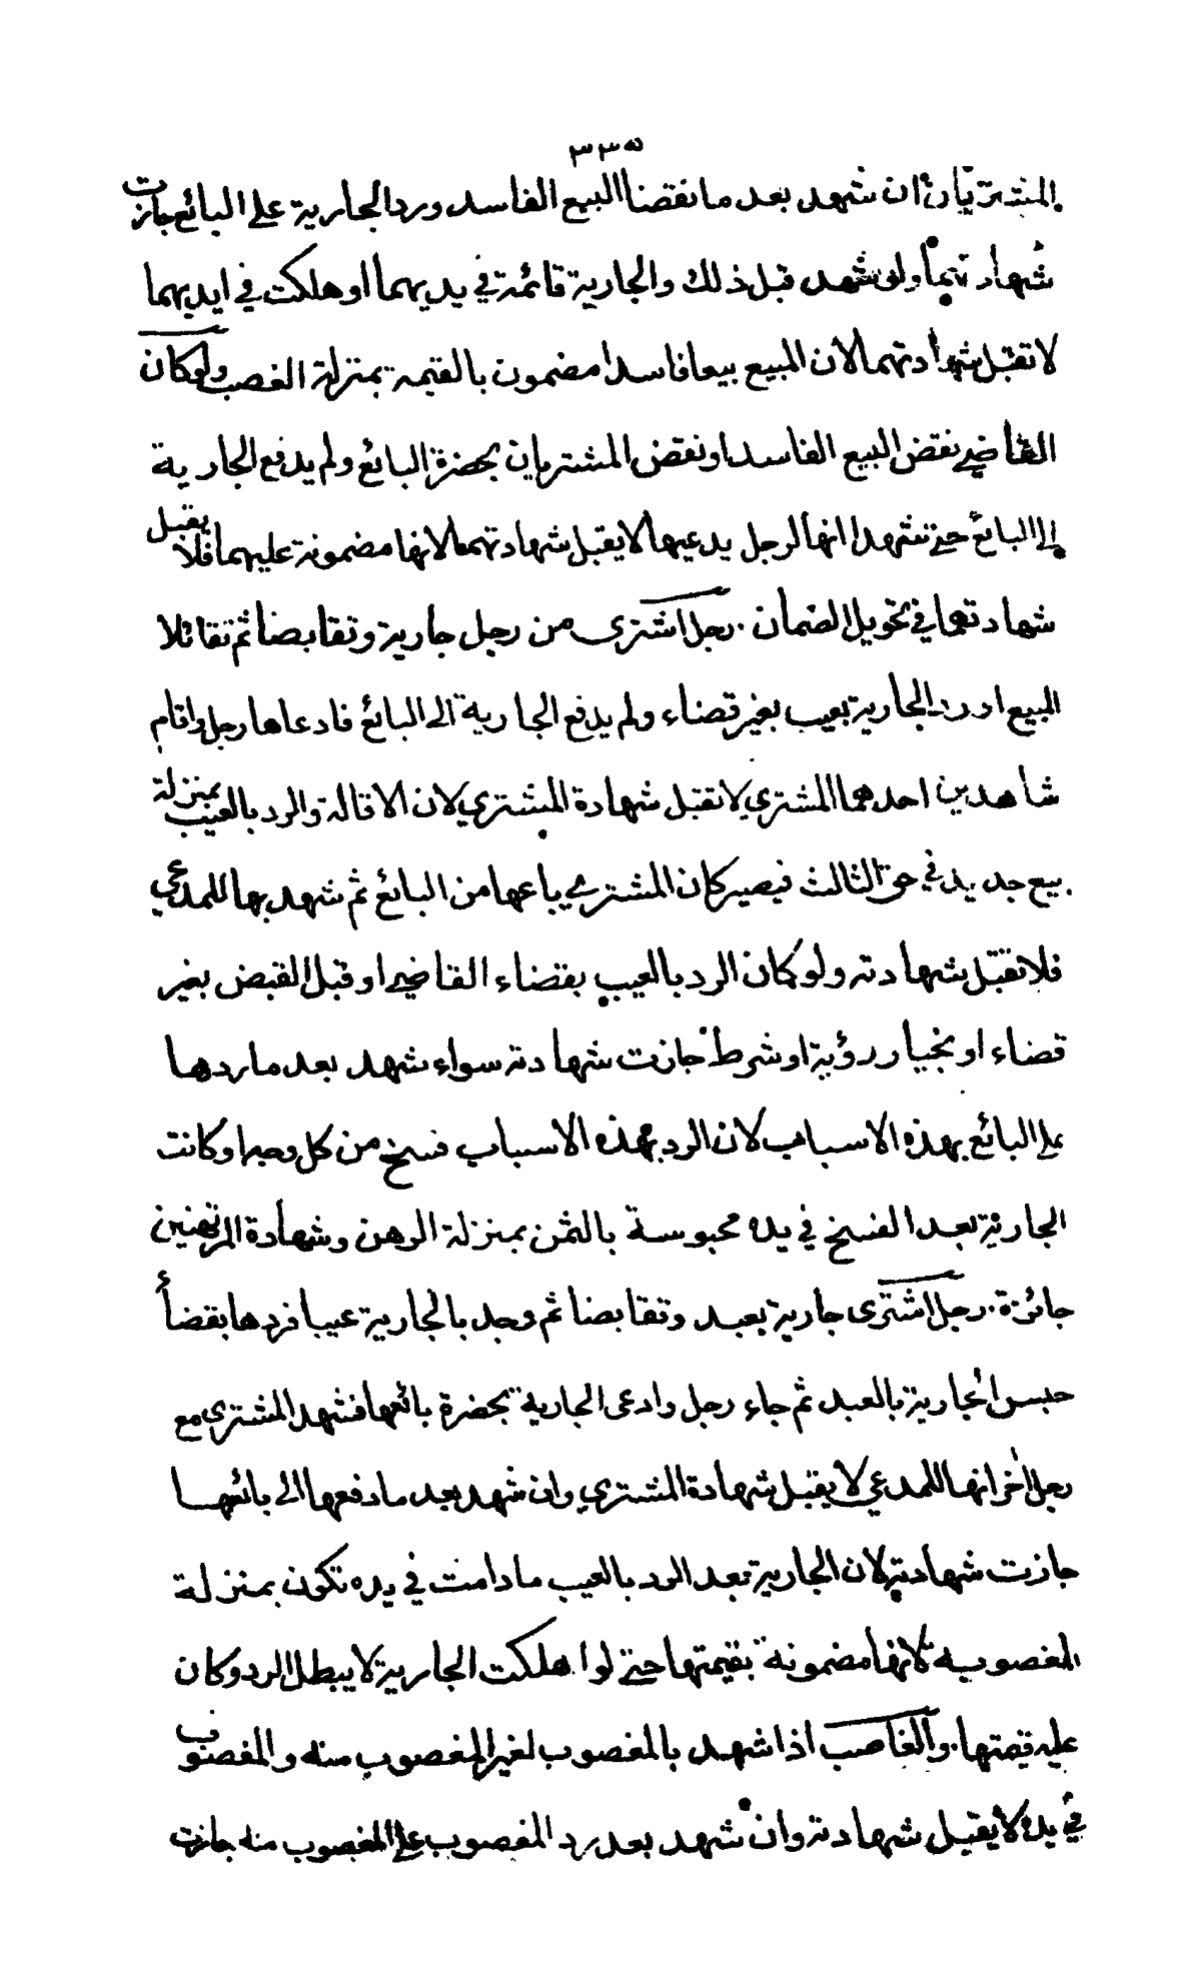 ٣٣٥
المشتريان ان شهد بعد ما نقضا البيع الفاسد وردا الجارية على البائع جازت
شهادتهما ولو شهد قبل ذلك والجارية قائمة في يديهما او هلكت في ايديهما
لا تقبل شهادتهما لان المبيع بيعا فاسدا مضمون بالقيمة بمنزلة الغصب ولو كان
القاضي نقض البيع الفاسد او نقض المشتريان بحضرة البائع ولم يدفع الجارية
الى البائع حتى شهدا انها لرجل يدعيها لا يقبل شهادتهما لانها مضمونة عليهما فلا يقبل
شهادتهما في تحويل الضمان . رجل اشترى من رجل جارية وتقابضا ثم تقائلا
البيع او رد الجارية بعيب بغير قضاء ولم يدفع الجارية الى البائع فادعاها رجل واقام
شاهدين احدهما المشتري لا تقبل شهادة المشتري لان الاقالة والرد بالعيب بمنزلة
بيع جديد في حق الثالث فيصير كان المشتري باعها من البائع ثم شهد بها للمدعي
فلا تقبل شهادته ولو كان الرد بالعيب بقضاء القاضي او قبل القبض بغير
قضاء او بخيار رؤية او شرط جازت شهادته سواء شهد بعد ما ردها
على البائع بهذه الاسباب لان الرد بهذه الاسباب فسخ من كل وجه او كانت
الجارية بعد الفسخ في يده محبوسة بالثمن بمنزلة الرهن وشهادة المرتهنين
جائزة . رجل اشترى جارية بعبد وتقابضا ثم وجد بالجارية عيبا فردها بقضاء
حبس الجارية بالعبد ثم جاء رجل وادعى الجارية بحضرة بائعها فشهد المشتري مع
رجل اخر انها للمدعي لا يقبل شهادة المشتري وان شهد بعد ما دفعها الى بائعها
جازت شهادته لان الجارية بعد الرد بالعيب ما دامت في يده تكون بمنزلة
المغصوبة لانها مضمونة بقيمتها حتى لو هلكت الجارية لا يبطل الرد وكان
عليه قيمتها . والغاصب اذا شهد بالمغصوب لغير المغصوب منه والمغصوب
في يده لا يقبل شهادته وان شهد بعد رد المغصوب على المغصوب منه جازت